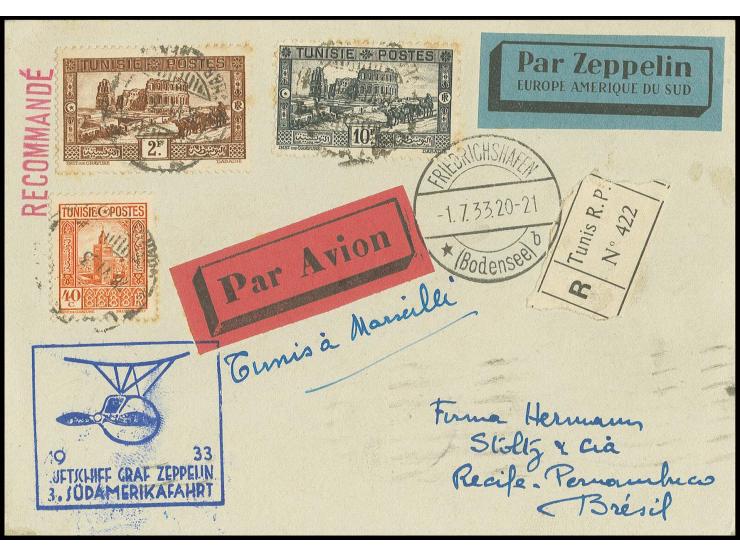 RECOMMANDÉ
TUNISIE POSTES
2F.
TUNISIE POSTES
10F.
Par Zeppelin
EUROPE AMERIQUE DU SUD
TUNISIE POSTES
40
c.
Par Avion
FRIEDRICHSHAFEN
-1.7.33.20-21
★ (Bodensee) b
R
Tunis R.P.
N° 422
Tunis à Marseille
19 33
LUFTSCHIFF GRAF ZEPPELIN
3. SÜDAMERIKAFAHRT
Firma Hermann
Stoltz & Cia
Recife-Pernambuco
Brésil